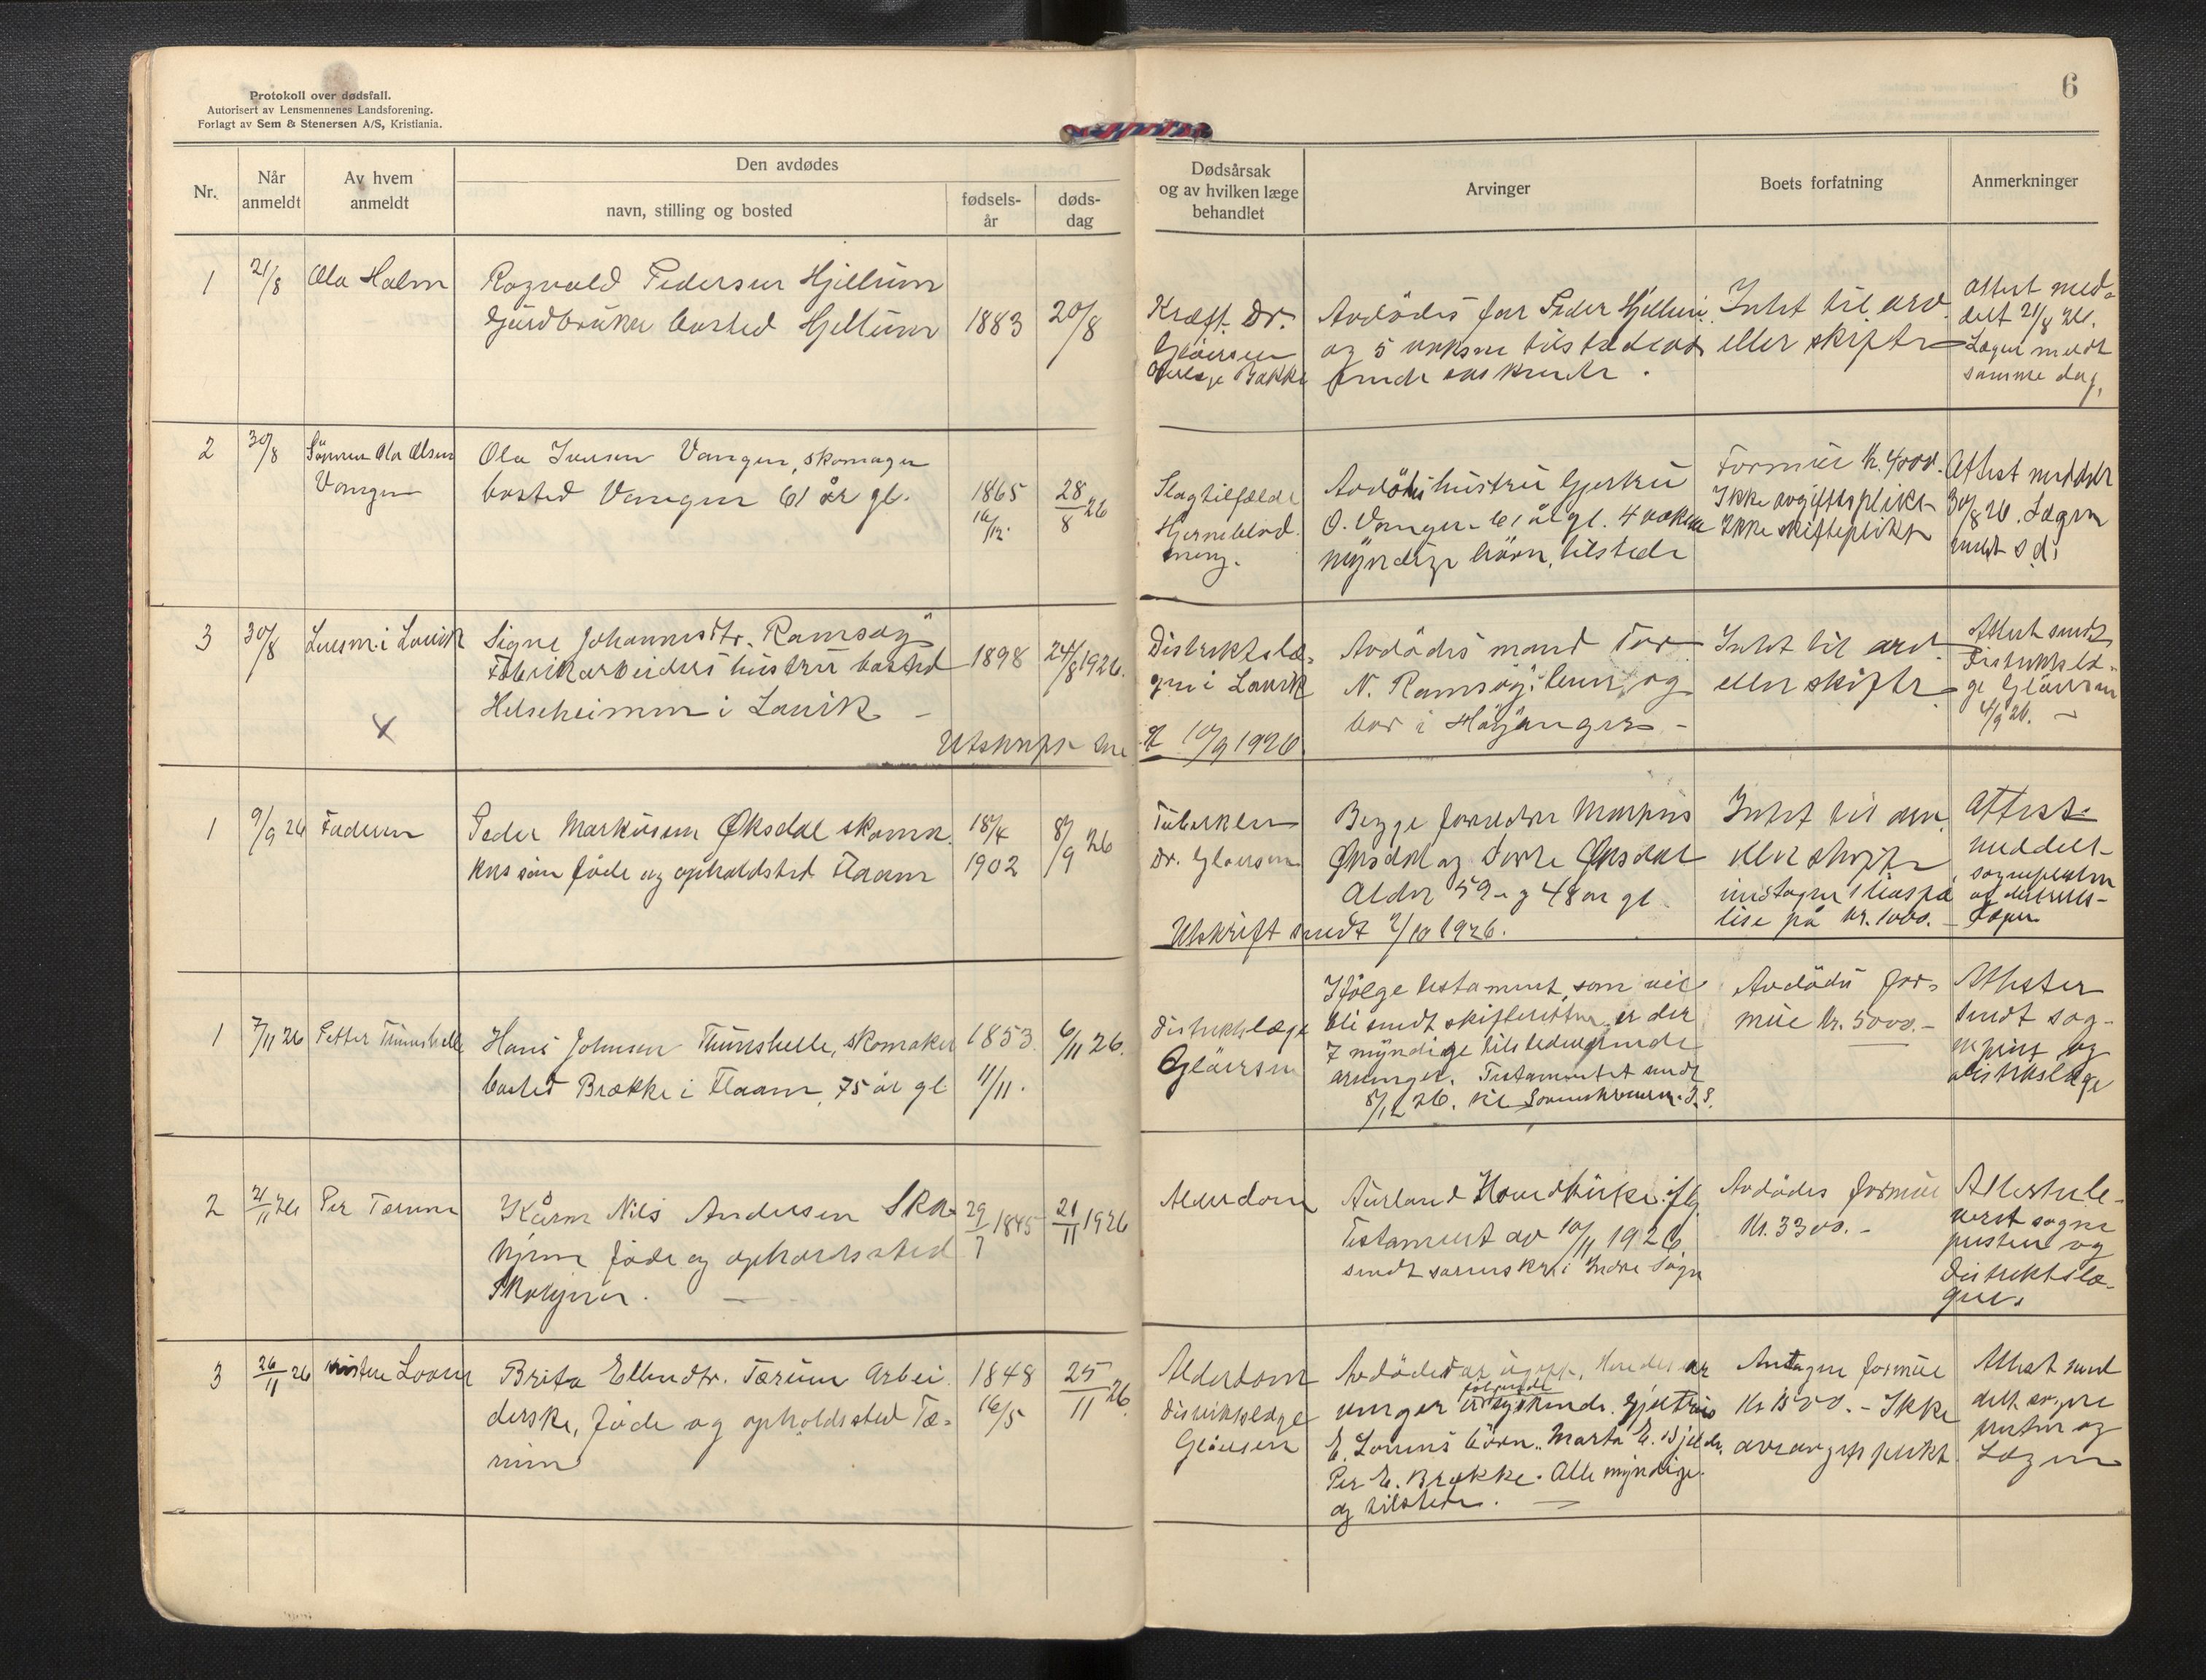 Protokoll over dødsfall.
Autorisert av Lensmennenes Landsforening.
Forlagt av Sem & Stenersen A/S, Kristiania.
6
Nr.
Når
anmeldt
Av hvem
anmeldt
Den avdødes
navn, stilling og bosted
fødsels-
år
døds-
dag
Dødsårsak
og av hvilken læge
behandlet
Arvinger
Boets forfatning
Anmerkninger
1
21/8
Ola Holm
Ragvald Pedersen Hjellum
Gardbruker bosted Hjellum
1883
20/8
Kræft. Dr.
Gløersen
Avdødes far Peder Hjellum
og 5 voksne tilstedevær
Intet til arv
eller skifte
Attest med-
delt 21/8 26.
Lægen medt
samme dag.
2
30/8
Sønnen Ola Olsen
Vangen
Ola Iversen Vangen, skomager
bosted Vangen 61 år gl.
1865
16/12.
28/8 26
Slagtilfælde
Hjerneblød
ning.
Avdødes hustru Gjertru
O. Vangen 61 år gl. 4 voksne
myndige børn, tilstede
Formue kr. 4000.
Ikke avgiftsplikt
Ikke skifteplikt
Attest meddelt
30/8 26. Lægen
medt s. d.
3
30/8
Lensm. i Lavik
Signe Johannesdtr. Ramsøy
Fabrikarbeiders hustru bosted
Helleheimen i Lavik –
1898
24/8 1926.
Utskrift
10/9 1926.
Distriktslæ-
gen i Lavik
Avdødes mand Tor
N. Ramsøy, og
bor i Høyanger –
Intet til arv
eller skifte
Attest sendt
distriktslæ-
ge Gløersen
4/9 26. –
1
9/9 26
Faderen
Peder Markusen Øksdal skoma
kers søn føde og opholdsted Flaam
18/4
1902
8/9 26
Tuberkler
Dr. Gløersen
Begge forældre Markus
Øksdal og Dorte Øksdal
Alder 59 og 48 år gl.
Utskrift sendt 2/10 1926.
Intet til arv
eller skifte
lise på kr. 1000.
Attest
meddelt
sognepresten
og distrikts-
lægen
1
7/11 26
Petter Thunshelle
Hans Johnsen Thunshelle, skomaker
bosted Brække i Flaam, 75 år gl
1853
11/11.
6/11 26.
Distriktslæge
Gløersen
Ifølge testament, som vil
bli sendt skifteretten, er der
7 myndige tilstedeværende
arvinger. Testamentet sendt
8/12 26. til Sorenskriveren I. S.
Avdødes for-
mue kr. 5000. –
Attester
sendt sog-
neprest og
distriktslæge
2
21/11 26
Per Tærum
Kårm. Nils Andersen Ska-
hjem føde og opholdssted
1845
29/7
21/11 1926
Alderdom
Aurland Hovedkirke iflg.
Testament av 10/11 1926
sendt sorenskr. i Indre Sogn
Avdødes formue
kr. 3300. –
Attest le-
vert sogne
presten og
distriktslæ-
gen.
3
26/11 26
Loven
Brita Ellendtr. Tærum Arbei
derske, føde og opholdssted Tæ-
rum
1848
16/5
25/11 26.
Alderdom
Distriktslæge
Gløersen
Avdøde var ugift. Hendes ar
vinger er følgende sydskende. Gjertrud
E. Lovens børn. Marta E. Bjelde.
Per E. Brekke. Alle myndige.
og tilstede. –
Antagen formue
kr. 1500. – Ikke
arveavgift plikt
Attest med
delt sogne
presten og
Lægen